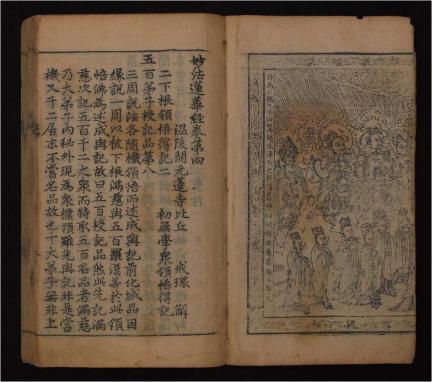 妙法蓮華經卷第四
溫陵開元蓮寺比丘 戒環 解
二下根領悟得記二 初無學衆領悟得記
五百弟子授記品第八
三周說法各隨機領悟而述成與記前化城品因
緣說一周以敎下根滿慈與五百羅漢善於此領
悟佛爲述成與記故曰五百授記品然此先記滿
慈次記五百千二之衆而特承五百名品者滿慈
乃大弟子內秘外現爲衆領雖先與記非是當
機又千二居末不當名品故也十大弟子無非上